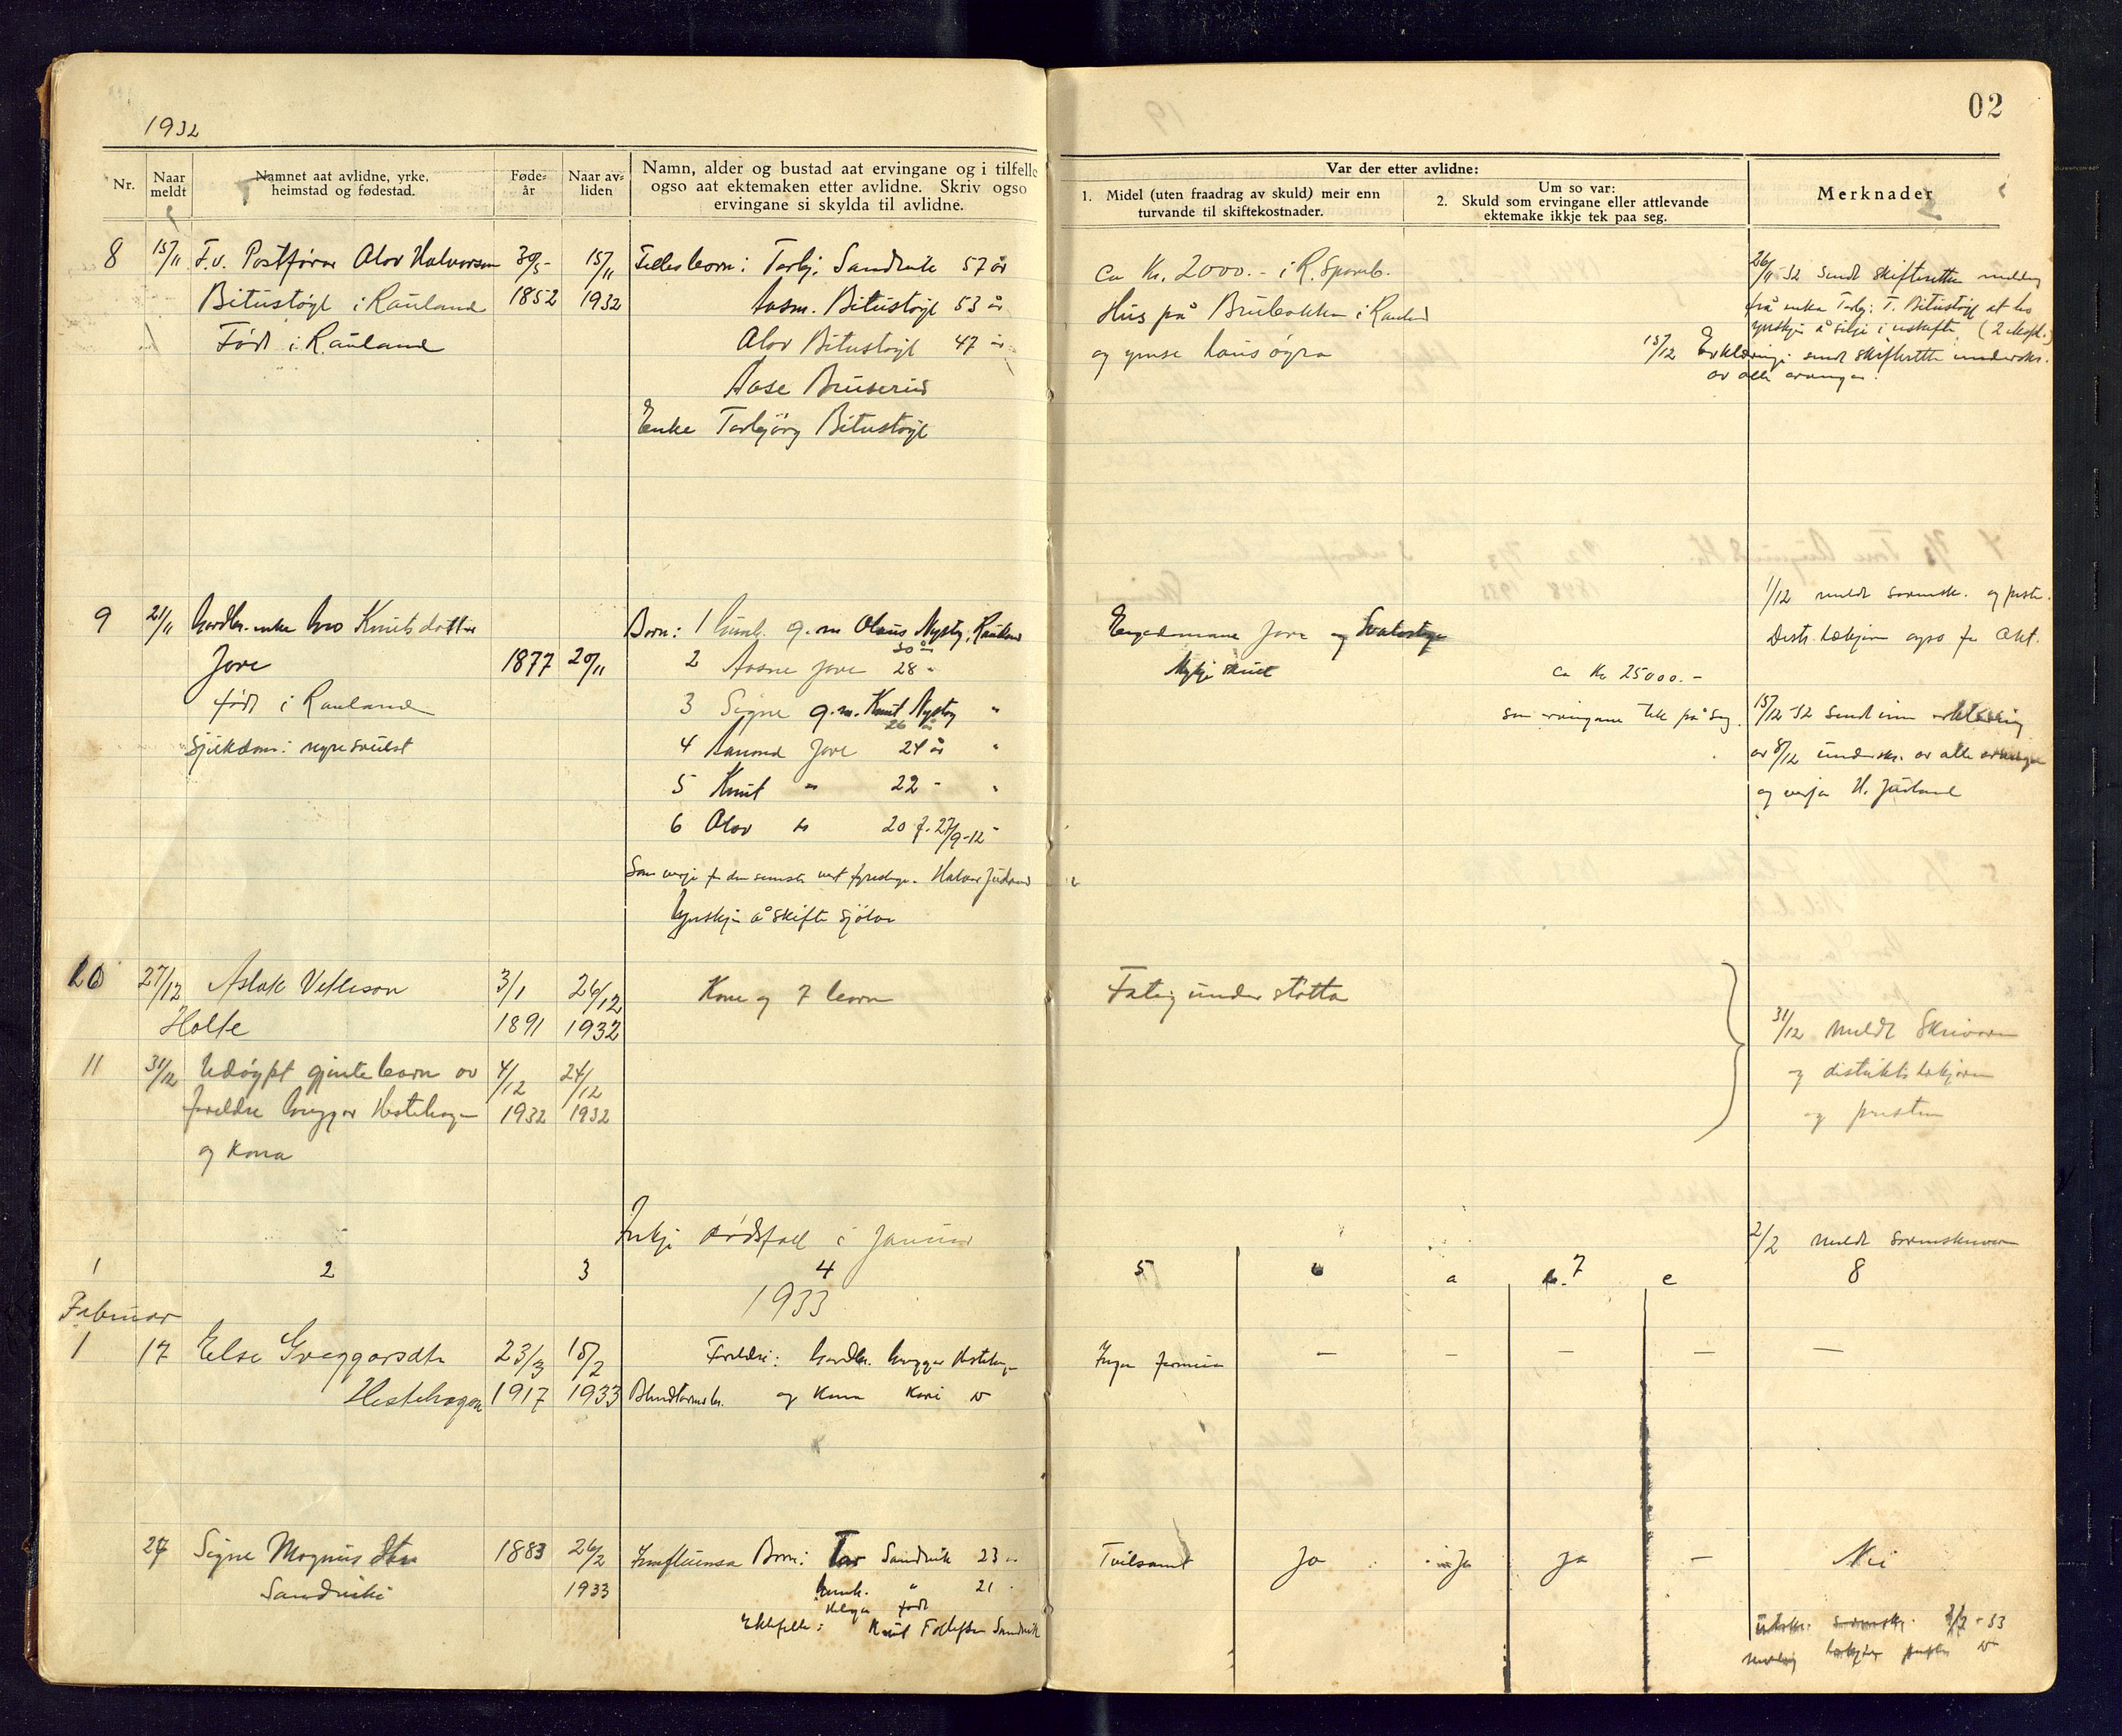 1932
02
Nr.
Naar meldt
Namnet aat avlidne, yrke, heimstad og fødestad.
Føde-år
Naar av-liden
Namn, alder og bustad aat ervingane og i tilfelle
ogso aat ektemaken etter avlidne. Skriv ogso
ervingane si skylda til avlidne.
Var der etter avlidne:
1. Midel (uten fraadrag av skuld) meir enn
turvande til skiftekostnader.
Um so var:
2. Skuld som ervingane eller attlevande
ektemake ikkje tek paa seg.
Merknader
8 15/11 F.v. Postførar Olav Halvorson 30/5- 15/11 Fellesborn: Torbj. Sandvik 57 år
Bitustøyl i Rauland 1852 1932 Aasm. Bitustøyl 53 år
Født i Rauland Olav Bitustøyl 47 år
Aase Bruserud
Enke Torbjørg Bitustøyl
ca Kr. 2000.- i R. Spareb.
Hus på Brubakken i Rauland
og ymse lausøyra
26/11-32 sendt skifteretten melding
frå enka Torbj. T. Bitustøyl at ho
ynskjer å sitja i uskifte (2 ekspl.)
15/12 Erklæring sendt skifteretten underskr.
av alle arvingar.
9 21/11 Gardbr. enke Gro Knutsdotter
Jore 1877 20/11
født i Rauland
Sjukdom: nyresvulst
Born: 1 Gunh. g.m Olav Nystog, Rauland
30 år
2 Aasne Jore 28 "
3 Signe g.m. Knut Nystog "
26 år
4 Aamund Jore 24 år "
5 Knut " 22 - "
6 Olav " 20 f. 27/9-12 -
Som verje for den seinste vert fyreslege. Halvor Juvland
Ynskjer å skifte sjølve
Eigedomane Jore og
Mykje skuld
ca Kr 25000.-
som arvingane tek på seg.
1/12 meldt sorensk. og prest.
Distr. lækjaren ogso for Okt.
15/12 32 sendt inn erklæring
av 8/12 undersk. av alle arvingar
og verja H. Juvland
10 27/12 Aslak Vetleson 3/1 26/12 Kone og 7 born
Holte 1891 1932
Fatig understøtta
11 31/12 Udøypt gjenteborn av 4/12 24/12
foreldre Greggar Hestehagen 1932 1932
og kona
31/12 meldt Skrivaren
og distriktslækjaren
og presten
Inkje dødsfall i Januar
2/2 meldt sorenskrivaren
1 2 3 4 5 6 a b. 7 c 8
1933
Februar
1 17 Else Greggarsdtr 23/3 15/2 Foreldre: Gardbr. Greggar Hestehagen
Hestehagen 1917 1933 Blindtarmsbet. og kona Kari "
Ingen formue — — — — —
27 Signe Magnusdtr 1883 26/2 Innfluensa Born: Tor Sandvik 23 "
Sandviki 1933 Gunh. " 21 -
Helga født
Ektefelle: Knut Folkeson Sandvik
Tvilsamt Ja Ja Ja — Nei
Utskr. sorensk. 3/3-33
Melding lækjar presten "